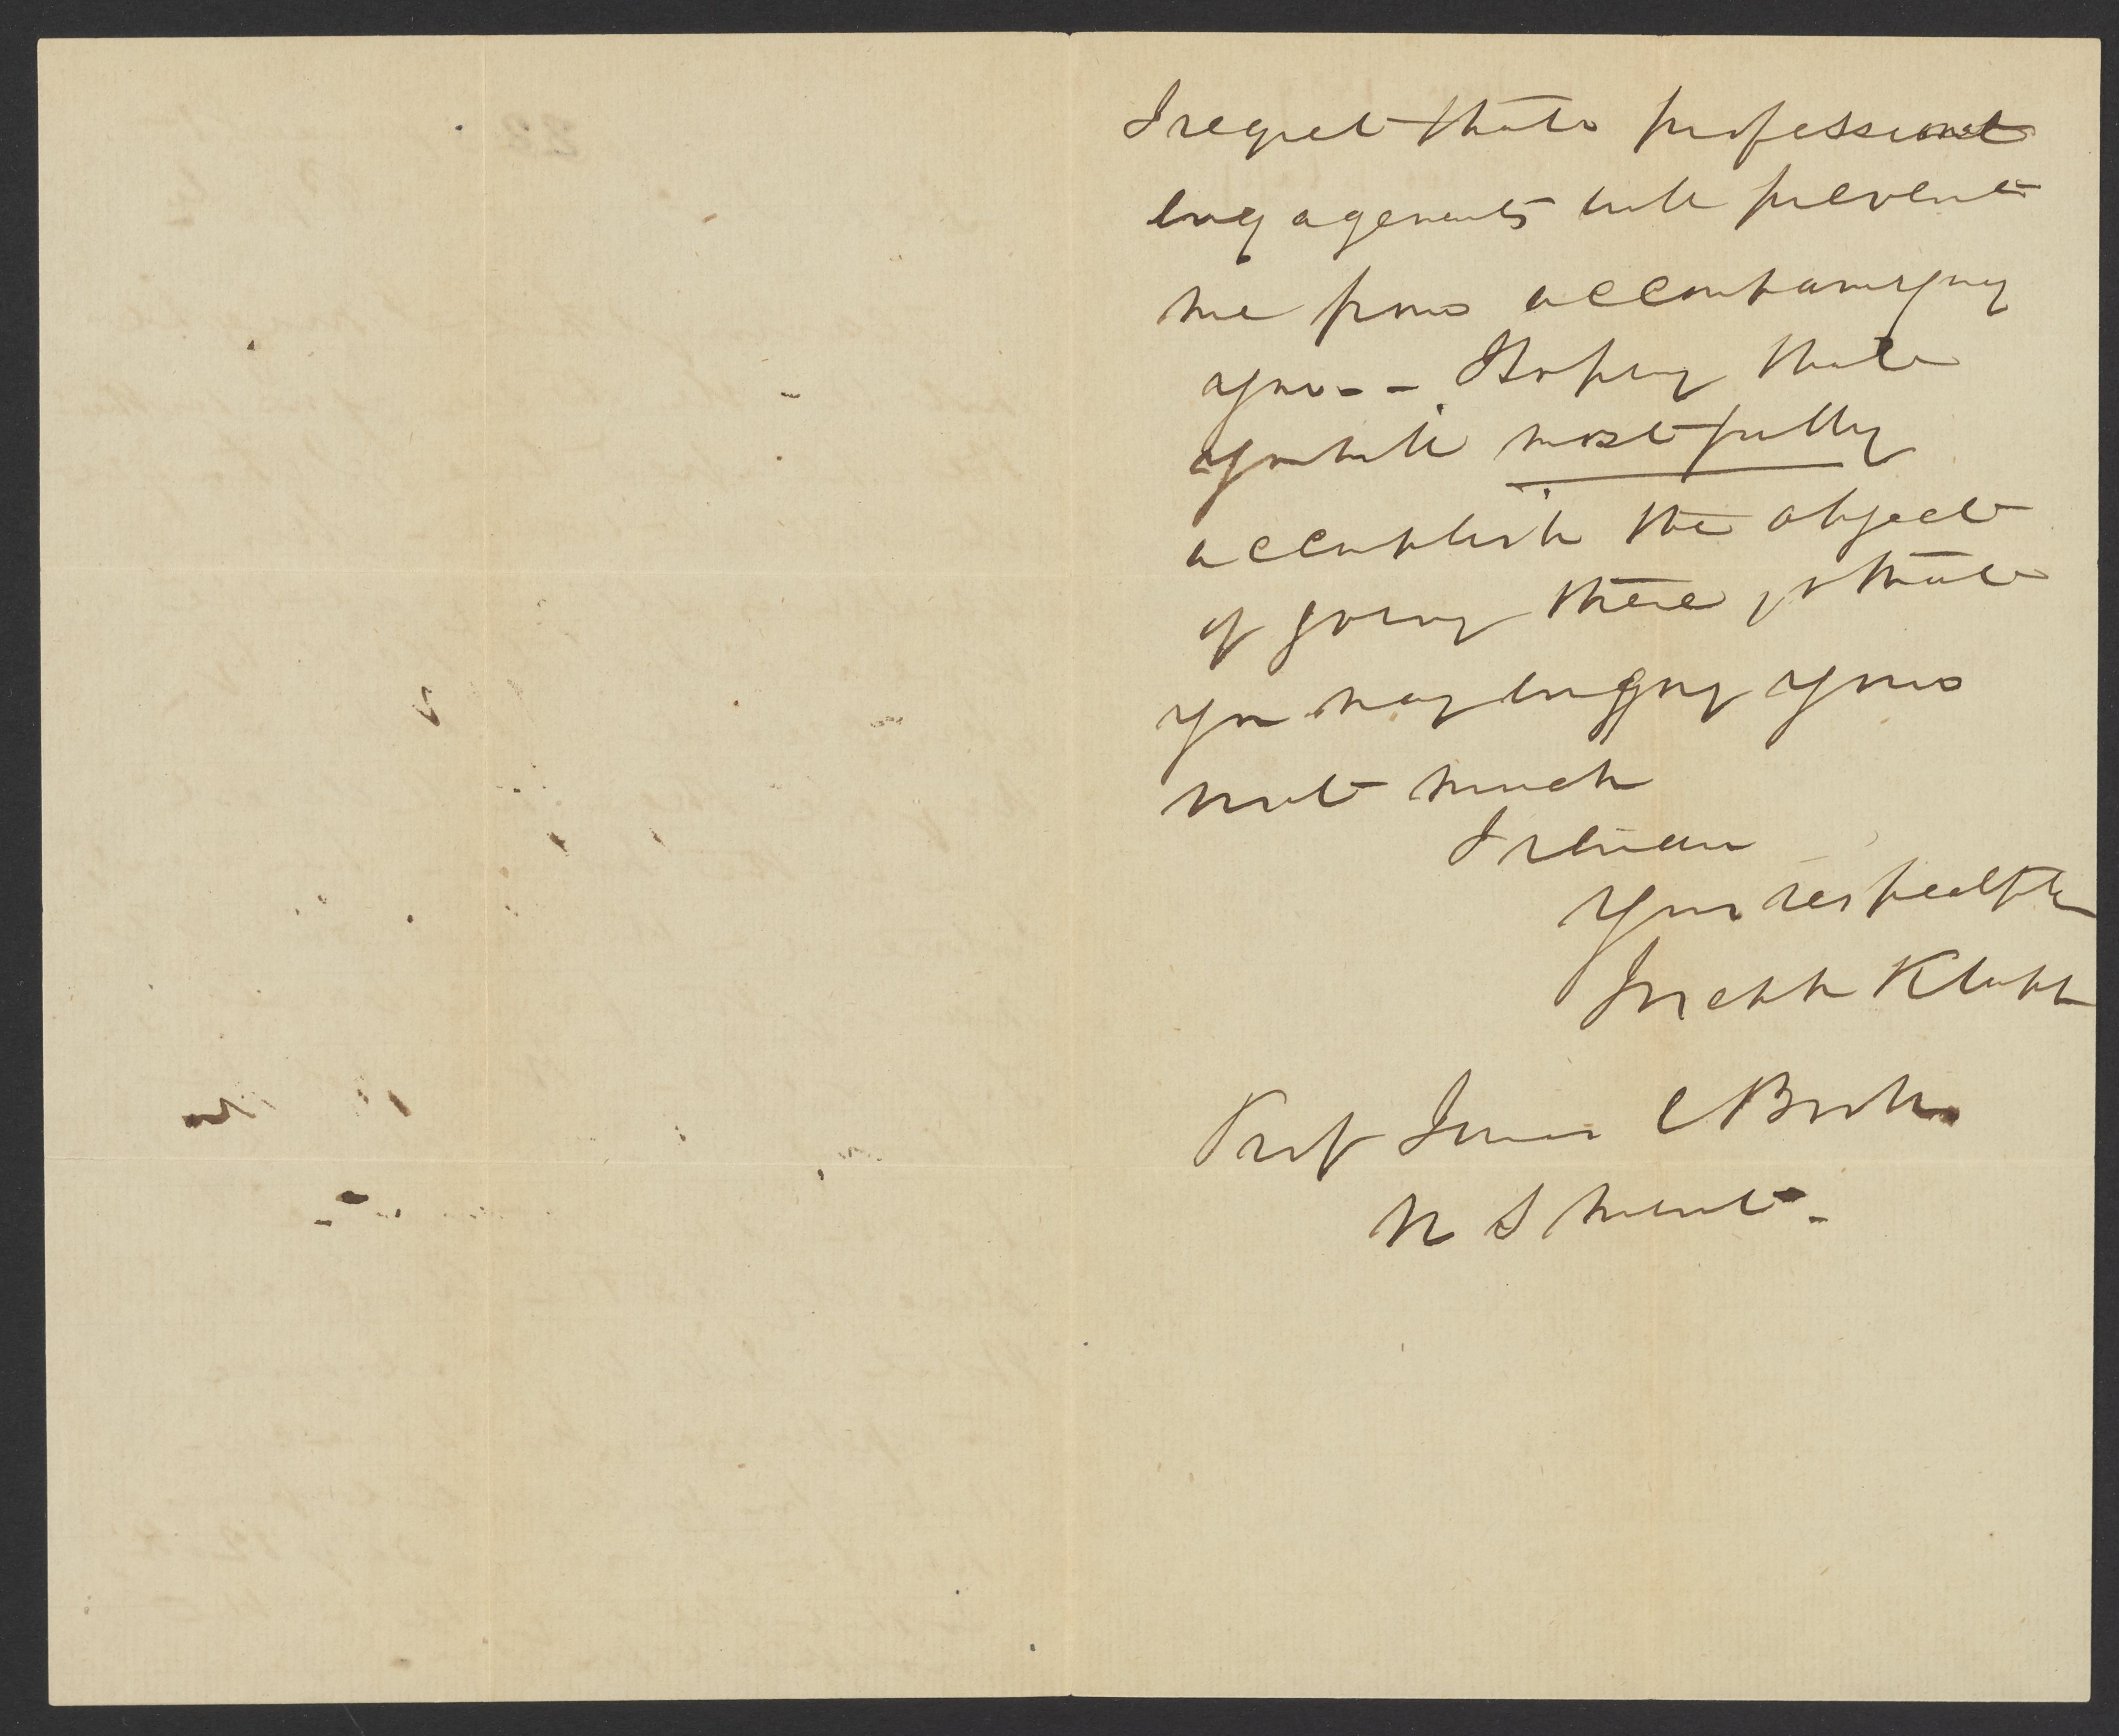 I regret that professional
engagements will prevent
me from accompanying
you -- Hoping that
you will most fully
accomplish the object
of going there, & that
you may enjoy your
visit much
I remain
Your respectfully
Joseph Klapp
Prof James C Booth
U S Mint -